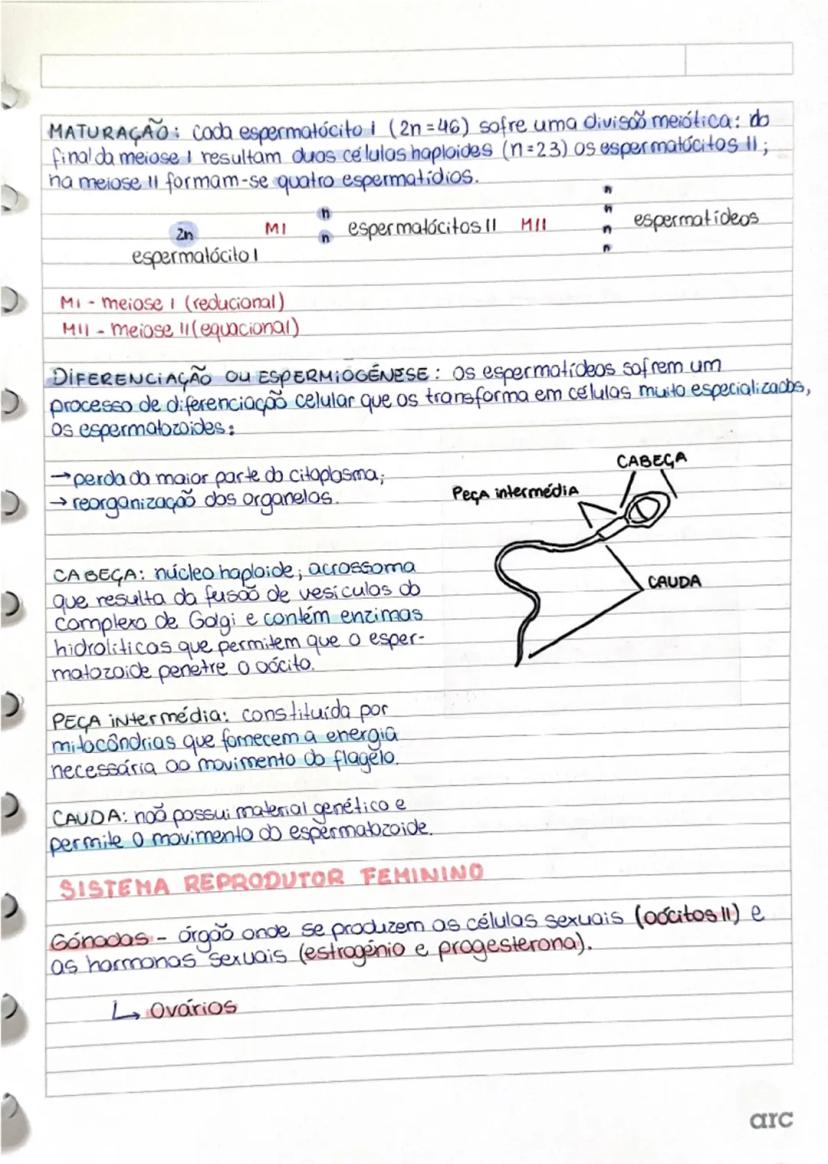 MATURAÇÃO: cada espermatócito I (2n=46) sofre uma divisão meiótica: do
final da meiose I resultam duas células haploides (n=23) os espermatócitos II;
na meiose II formam-se quatro espermatídios.
2n
espermatócito I
MI
n
n
espermatócitos II
MII
n
n
n
n
espermatídeos
MI - meiose I (reducional)
MII - meiose II (equacional)
DIFERENCIAÇÃO OU ESPERMIOGÉNESE: os espermatídeos sofrem um
processo de diferenciação celular que os transforma em células muito especializadas,
os espermatozoides:
→ perda da maior parte do citoplasma;
→ reorganização dos organelos.
CABEÇA
PEÇA intermédia
CAUDA
CABEÇA: núcleo haploide; acrossoma
que resulta da fusão de vesículas do
complexo de Golgi e contém enzimas
hidrolíticas que permitem que o esper-
matozoide penetre o oócito.
PEÇA intermédia: constituída por
mitocôndrias que fornecem a energia
necessária ao movimento do flagelo.
CAUDA: não possui material genético e
permite o movimento do espermatozoide.
SISTEMA REPRODUTOR FEMININO
Gónadas - órgão onde se produzem as células sexuais (oócitos II) e
as hormonas sexuais (estrogénio e progesterona).
↳ Ovários
arc